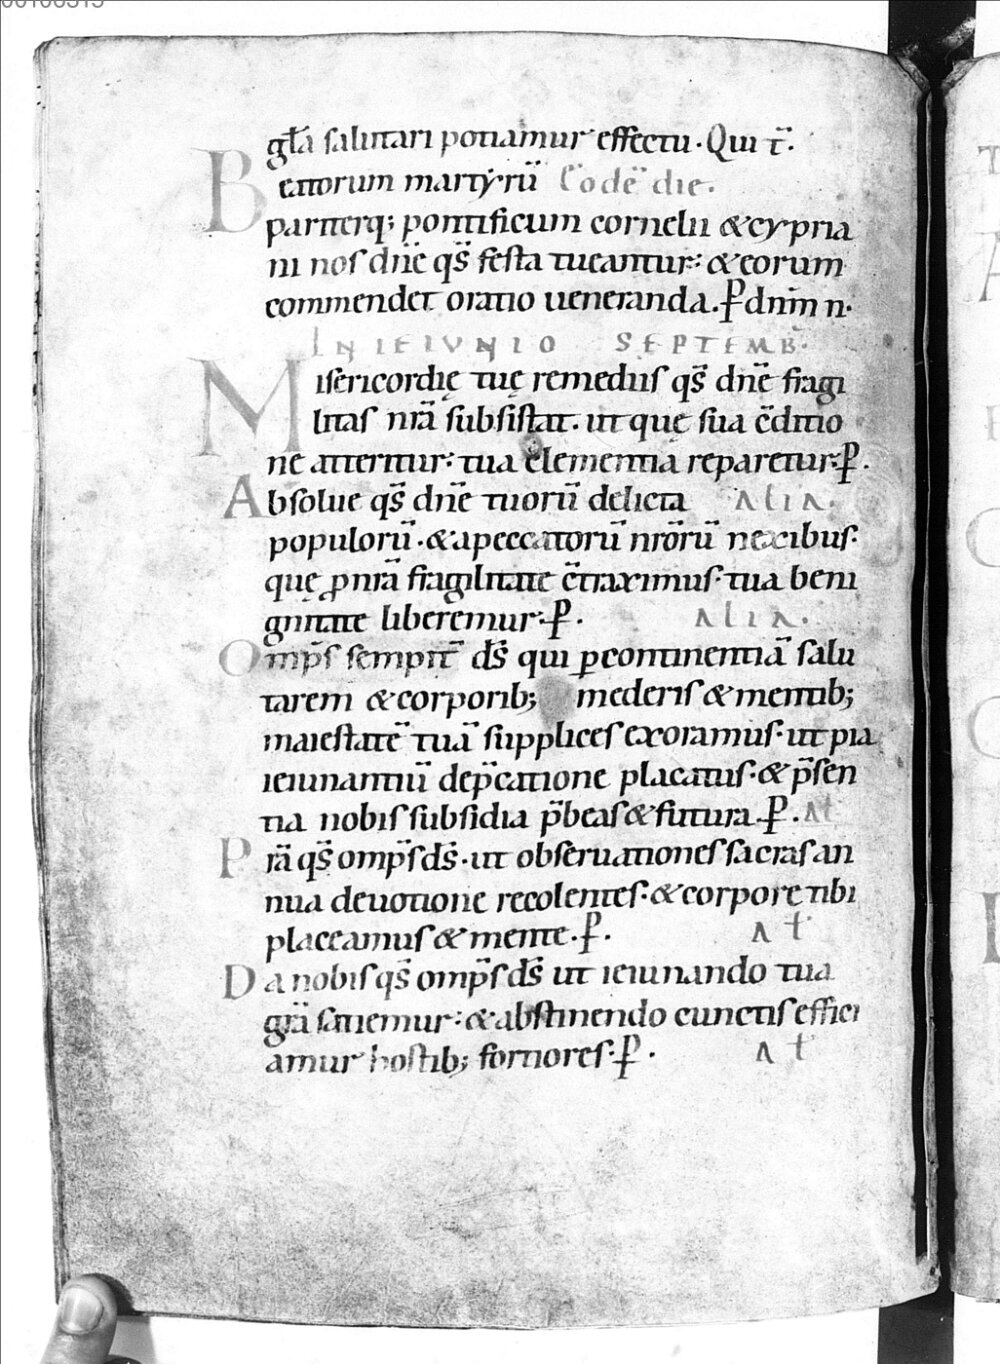 gl̄a salutari potiamur effectu. Qui t̄.
Beatorum martyrū Eodē die.
pariterq; pontificum cornelii & cypria
ni nos dn̄e qs̄ festa tueantur: & eorum
commendet oratio ueneranda. P dnm̄ n.
IN IEIUNIO SEPTEMB.
Misericordię tuę remediis qs̄ dn̄e fragi
litas nr̄a subsistat. ut que sua c̄ditio
ne atteritur: tua clementia reparetur. P.
Absolue qs̄ dn̄e tuorū delicta ALIA.
populorū. & a peccatorū nr̄orū nexibus.
quę ꝓ nr̄a fragilitate c̄traximus. tua beni
gnitate liberemur. P. ALIA.
Omp̄s sempit̄ ds̄ qui ꝑ continentiā salu
tarem & corporib; mederis & mentib;
maiestatē tuā supplices exoramus. ut pia
ieiunantiū dep̄catione placatus. & p̄sen
tia nobis subsidia p̄beas & futura. P. At
Pr̄a qs̄ omp̄s ds̄. ut obseruationes sacras an
nua deuotione recolentes. & corpore tibi
placeamus & mente. P. At
Da nobis qs̄ omp̄s ds̄ ut ieiunando tua
gr̄a satiemur: & abstinendo cunctis effici
amur hostib; fortiores. P. At